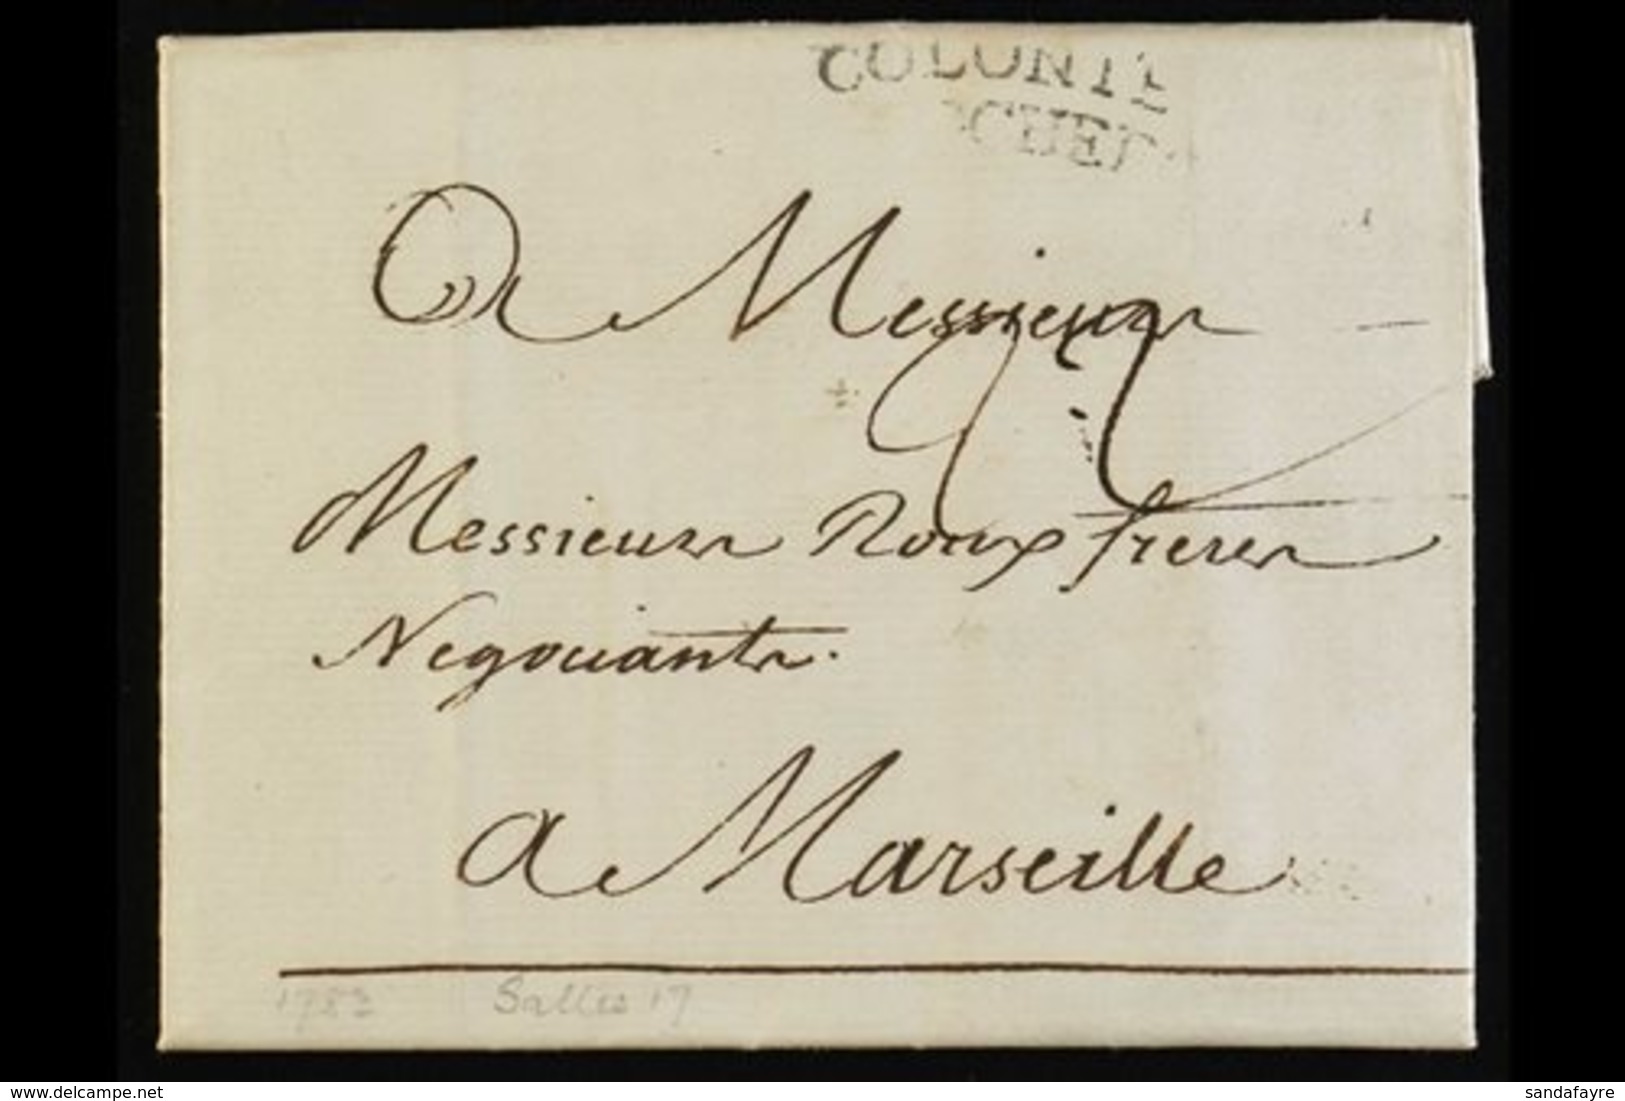 COLONIE
OCHEL
A Messieurs
Messieurs Roux freres
Negociants.
a Marseille
1783 Salles 17
see more on www.delcampe.net
sandafayre